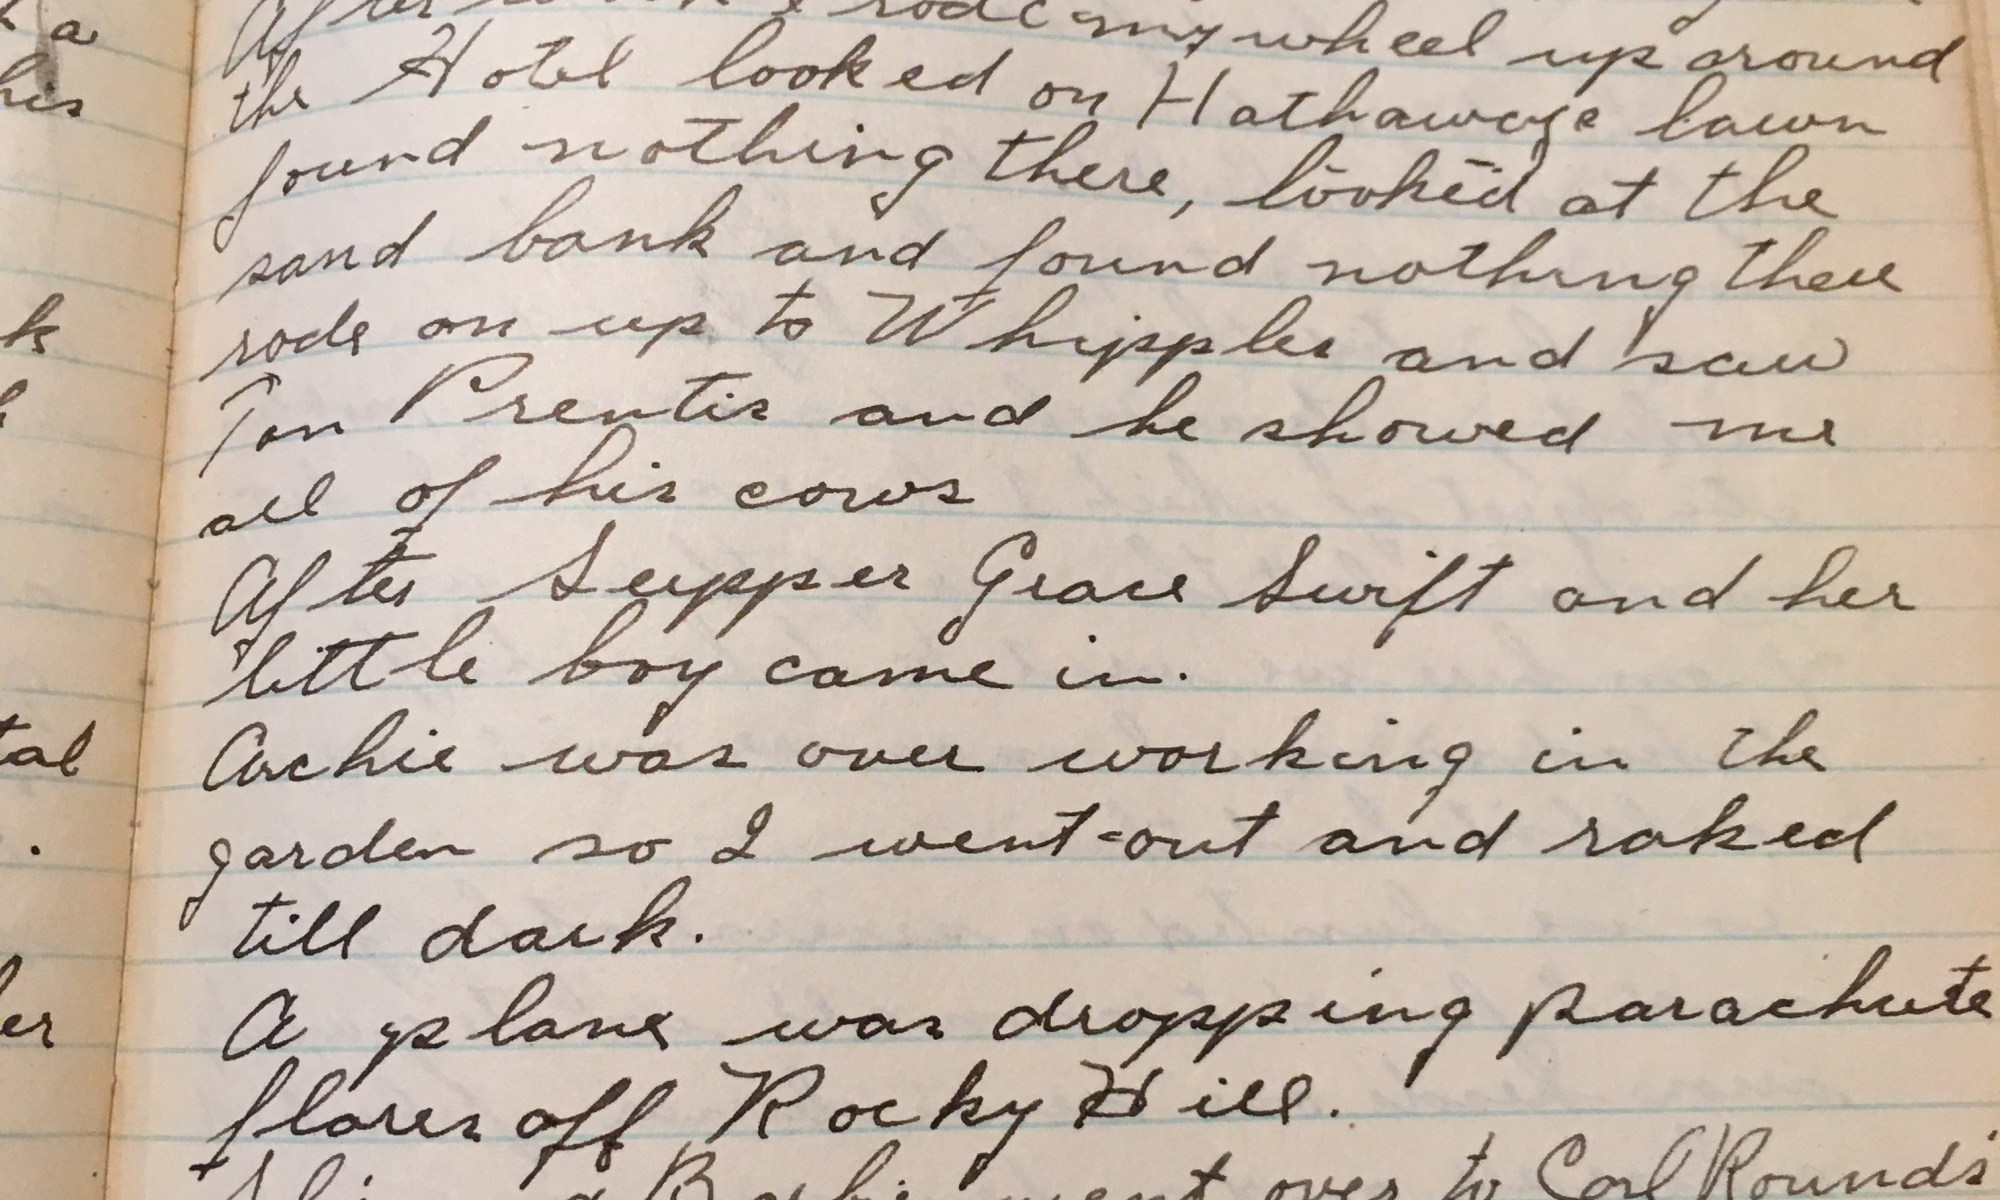 After I rode my wheel up around
the Hotel looked on Hathaways lawn
found nothing there, looked at the
sand bank and found nothing there
rode on up to Whipples and saw
Tom Prentis and he showed me
all of his cows
After Supper Grace Swift and her
little boy came in.
Archie was over working in the
garden so I went-out and raked
till dark.
A plane was dropping parachute
flares off Rocky Hill.
went over to Carl Rounds